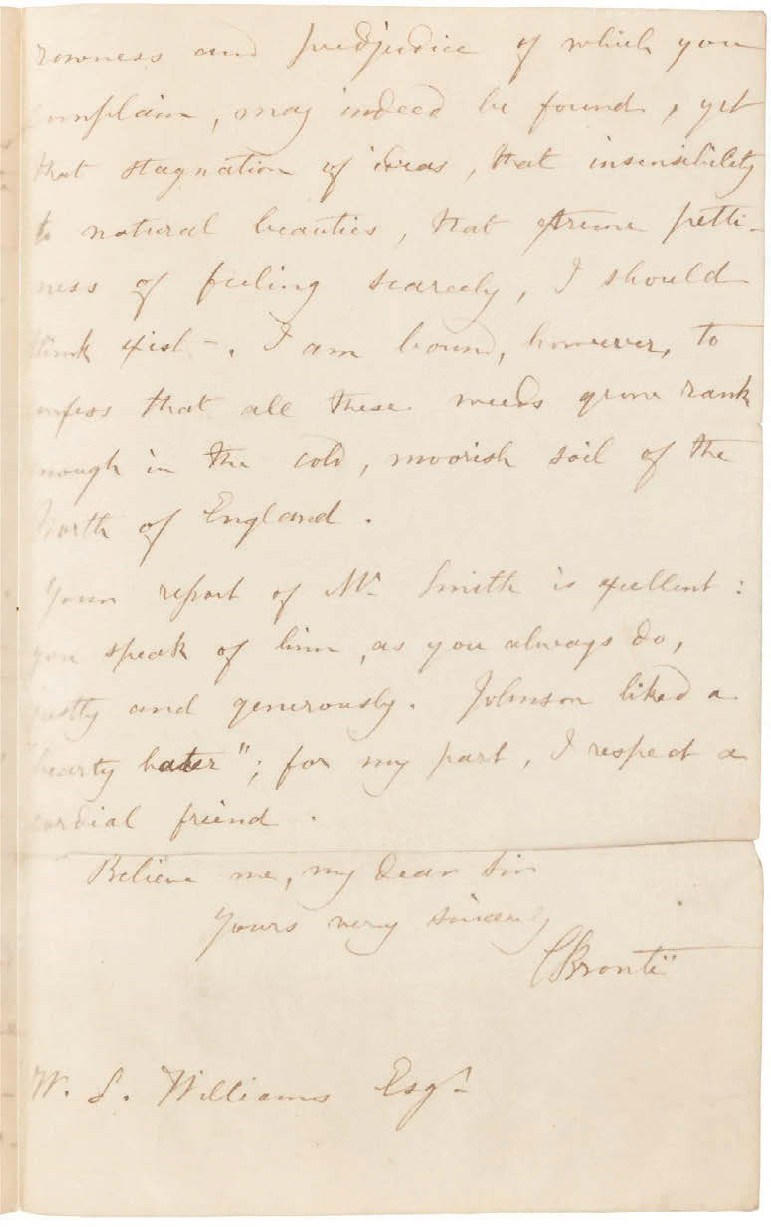 rowness and predjudice of which you
complain, may indeed be found, yet
that stagnation of ideas, that insensibility
to natural beauties, that extreme petti-
ness of feeling scarcely, I should
think exist-. I am bound, however, to
confess that all these weeds grow rank
enough in the cold, moorish soil of the
North of England.
Your report of Mr Smith is excellent:
you speak of him, as you always do,
justly and generously. Johnson liked a
"hearty hater"; for my part, I respect a
cordial friend.
Believe me, my dear Sir
Yours very sincerely
CBrontë
W. S. Williams Esqr